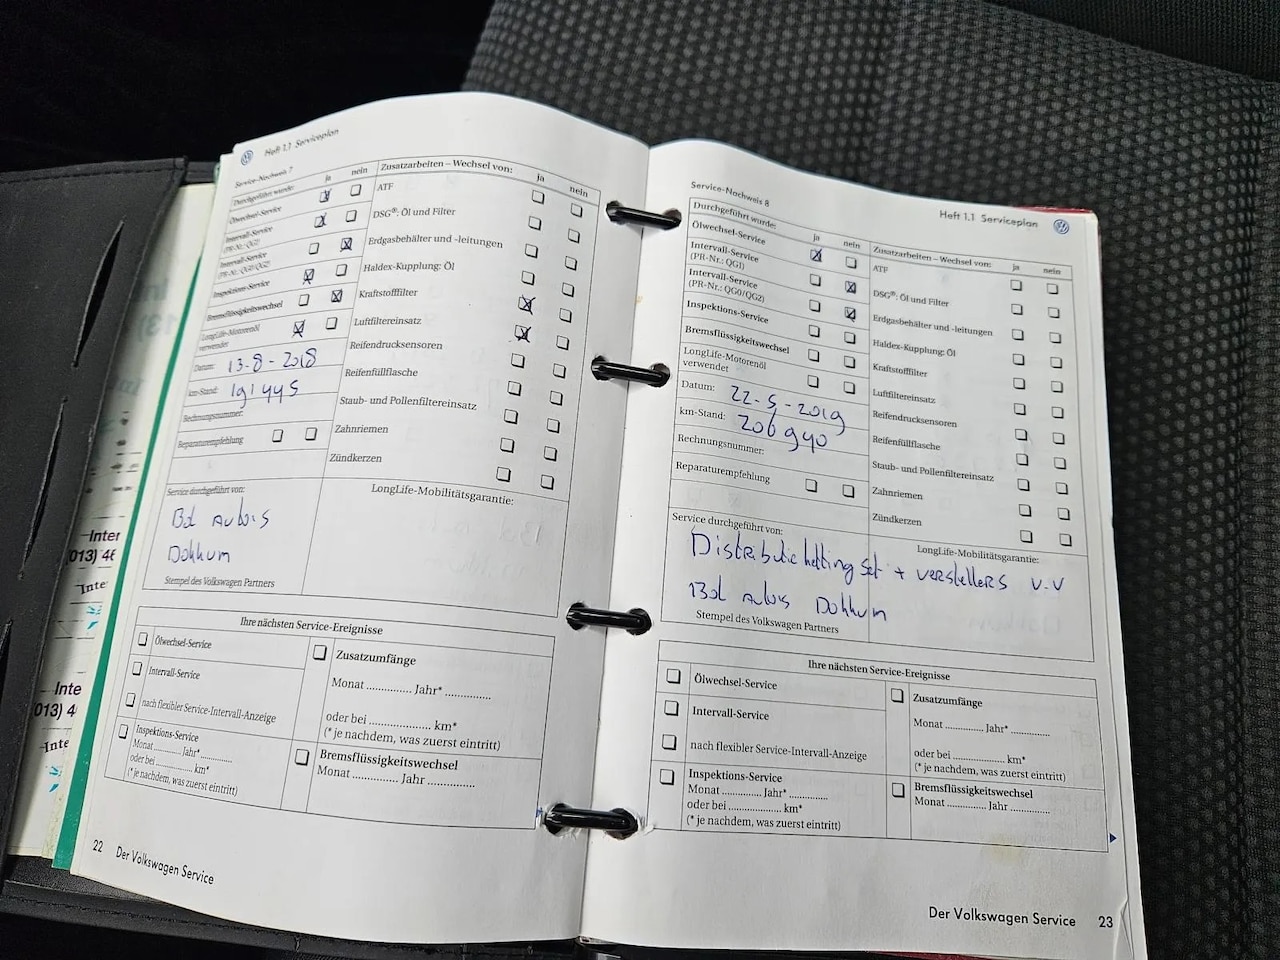 Heft 1.1 Serviceplan
Service-Nachweis 7
Durchgeführt wurde: ja nein
Ölwechsel-Service
Intervall-Service
(PR-Nr.: QG1)
Intervall-Service
(PR-Nr.: QG0/QG2)
Inspektions-Service
Bremsflüssigkeitswechsel
LongLife-Motorenöl
verwendet
Datum: 13-8-2018
km-Stand: 191445
Rechnungsnummer:
Reparaturempfehlung
Zusatzarbeiten – Wechsel von: ja nein
ATF
DSG®: Öl und Filter
Erdgasbehälter und -leitungen
Haldex-Kupplung: Öl
Kraftstofffilter
Luftfiltereinsatz
Reifendrucksensoren
Reifenfüllflasche
Staub- und Pollenfiltereinsatz
Zahnriemen
Zündkerzen
Service durchgeführt von:
Dokkum
Stempel des Volkswagen Partners
LongLife-Mobilitätsgarantie:
Ihre nächsten Service-Ereignisse
Ölwechsel-Service
Intervall-Service
nach flexibler Service-Intervall-Anzeige
Inspektions-Service
Monat ........... Jahr* ...........
oder bei ........... km*
(* je nachdem, was zuerst eintritt)
Zusatzumfänge
Monat ............... Jahr* ...............
oder bei .................... km*
(* je nachdem, was zuerst eintritt)
Bremsflüssigkeitswechsel
Monat ............... Jahr ...............
22 Der Volkswagen Service
Service-Nachweis 8
Heft 1.1 Serviceplan
Durchgeführt wurde: ja nein
Ölwechsel-Service
Intervall-Service
(PR-Nr.: QG1)
Intervall-Service
(PR-Nr.: QG0/QG2)
Inspektions-Service
Bremsflüssigkeitswechsel
LongLife-Motorenöl
verwendet
Datum: 22-5-2019
km-Stand: 206940
Rechnungsnummer:
Reparaturempfehlung
Zusatzarbeiten – Wechsel von: ja nein
ATF
DSG®: Öl und Filter
Erdgasbehälter und -leitungen
Haldex-Kupplung: Öl
Kraftstofffilter
Luftfiltereinsatz
Reifendrucksensoren
Reifenfüllflasche
Staub- und Pollenfiltereinsatz
Zahnriemen
Zündkerzen
Service durchgeführt von:
LongLife-Mobilitätsgarantie:
Distributie ketting set + verstellers v.v
Dokkum
Stempel des Volkswagen Partners
Ihre nächsten Service-Ereignisse
Ölwechsel-Service
Intervall-Service
nach flexibler Service-Intervall-Anzeige
Inspektions-Service
Monat ............. Jahr* .............
oder bei ................ km*
(* je nachdem, was zuerst eintritt)
Zusatzumfänge
Monat ............. Jahr* .............
oder bei ................ km*
(* je nachdem, was zuerst eintritt)
Bremsflüssigkeitswechsel
Monat ............. Jahr .............
Der Volkswagen Service 23